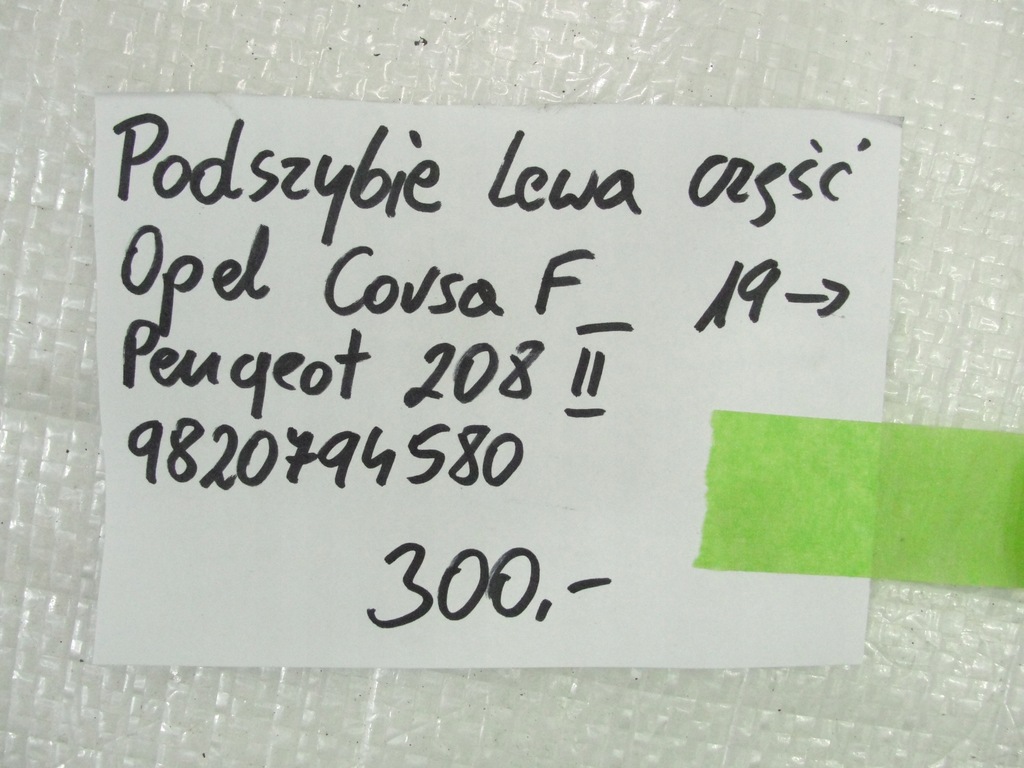 Podszybie lewa część
Opel Corsa F 19→
Peugeot 208 II
9820794580
300.-